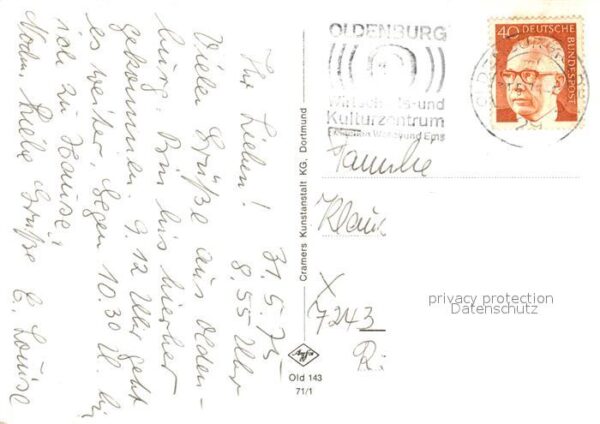 31.5.73
8.55 Uhr
Ihr Lieben!
Viele Grüße aus Olden-
burg. Bin bis hierher
gekommen. 9.12 Uhr geht
es weiter. Gegen 10.30 U. bin
ich zu Hause.
Liebe Grüße E. Louise
Cramers Kunstanstalt KG. Dortmund
Agfa
Old 143
71/1
OLDENBURG
Wirtschafts-und
Kulturzentrum
zwischen Weser und Ems
40
DEUTSCHE
BUNDESPOST
Familie
Klaus
7243
privacy protection
Datenschutz